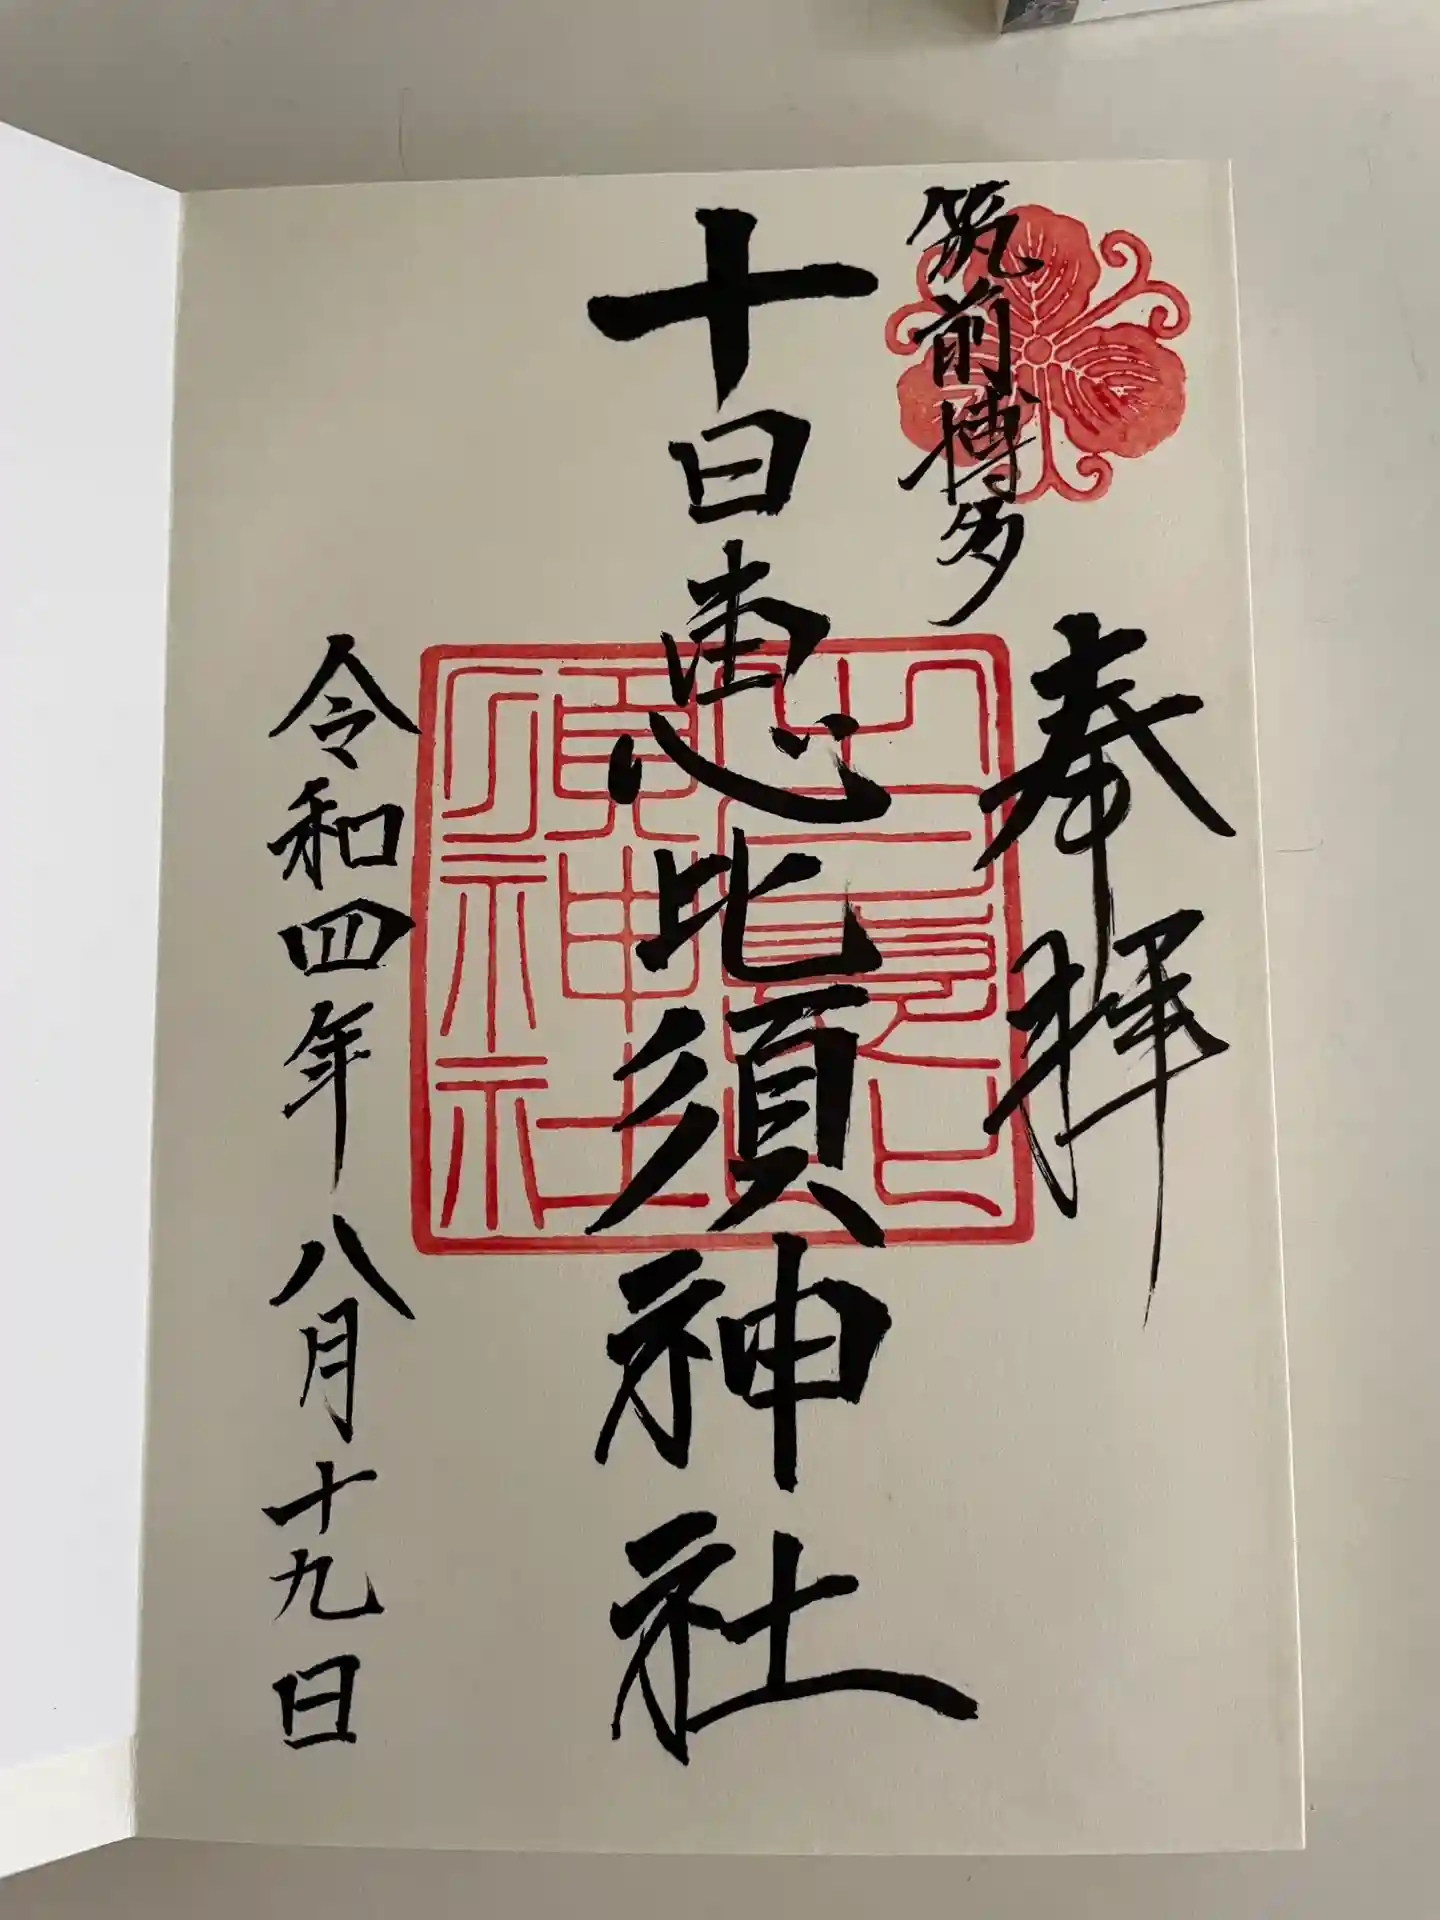 筑前博多
奉拝
十日恵比須神社
十日恵比須神社
令和四年八月十九日